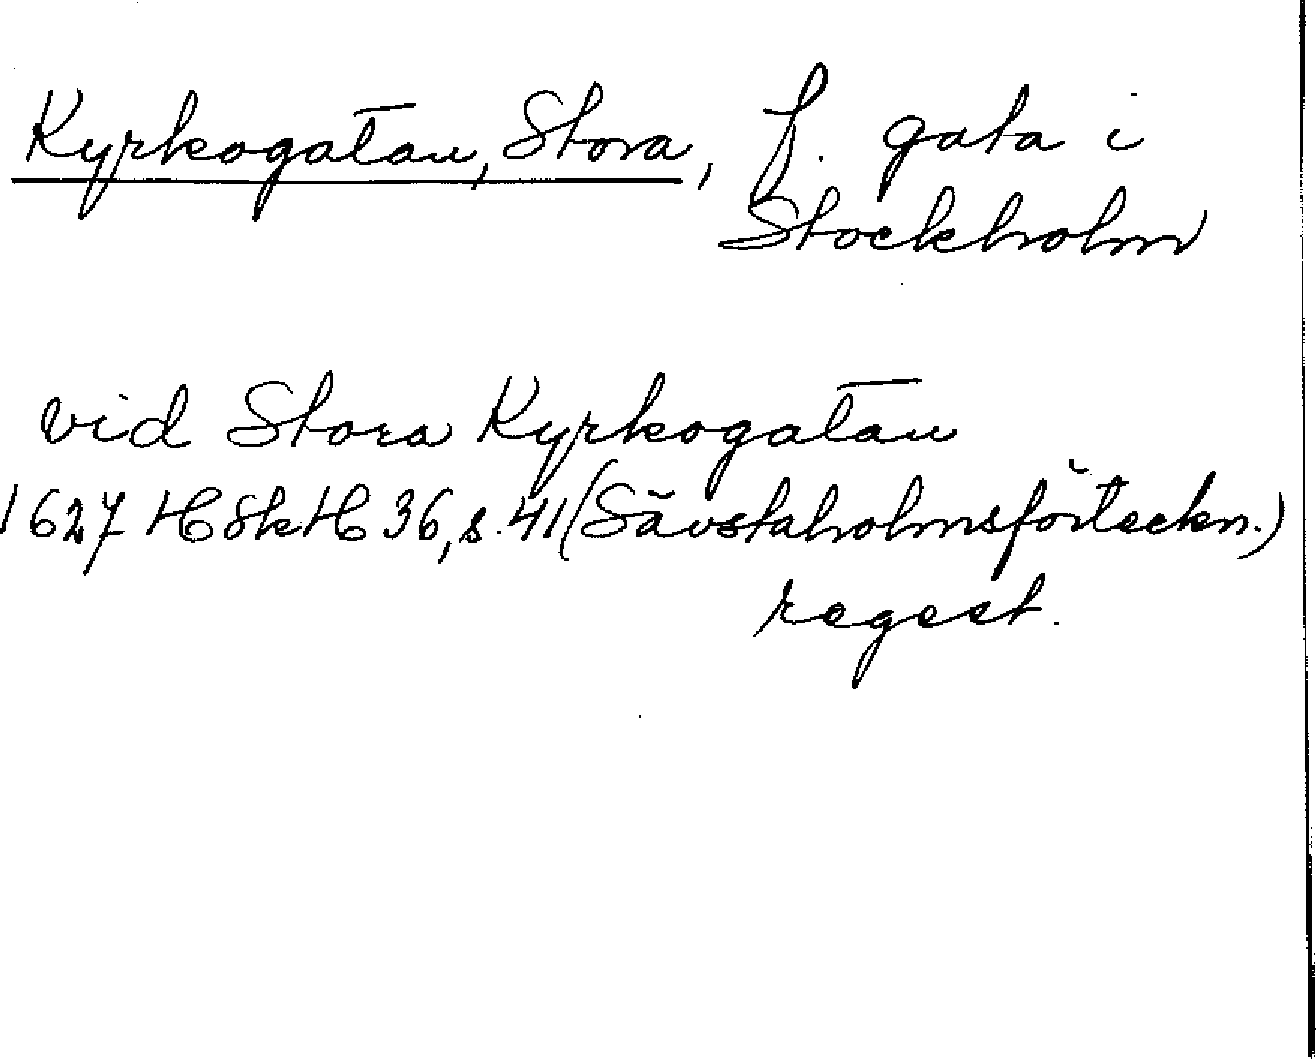 Kyrkogatan, Stora, f. gata i
Stockholm
vid Stora Kyrkogatan
1627 HSkH 36, s. 41 (Sävstaholmsförteckn.)
regest.